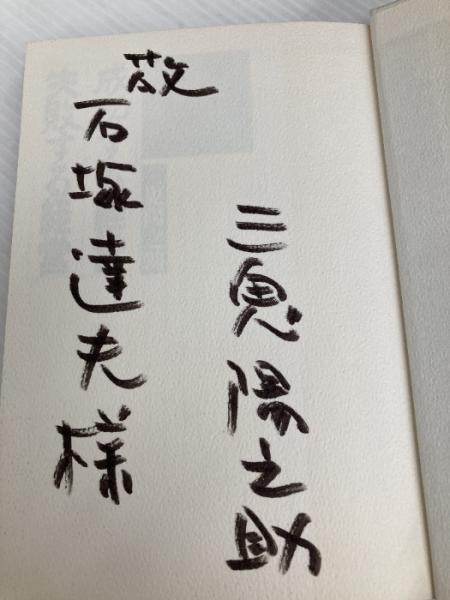 三鬼陽之助
石塚達夫様